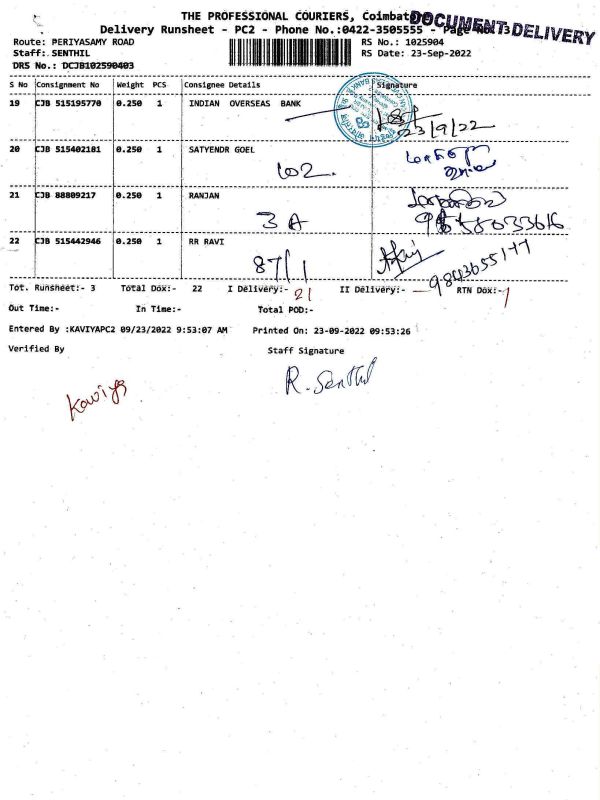 THE PROFESSIONAL COURIERS, Coimbatore
DOCUMENT DELIVERY
Delivery Runsheet - PC2 - Phone No.:0422-3505555 - Page No. 3
Route: PERIYASAMY ROAD RS No.: 1025904
Staff: SENTHIL RS Date: 23-Sep-2022
DRS No.: DCJB102590403
S No Consignment No Weight PCS Consignee Details Signature
19 CJB 515195770 0.250 1 INDIAN OVERSEAS BANK
23/9/22
20 CJB 515402181 0.250 1 SATYENDR GOEL
102
21 CJB 88809217 0.250 1 RANJAN
3A
22 CJB 515442946 0.250 1 RR RAVI
87/1 9843655177
Tot. Runsheet:- 3 Total Dox:- 22 I Delivery:- 21 II Delivery:- RTN Dox:- 1
Out Time:- In Time:- Total POD:-
Entered By :KAVIYAPC2 09/23/2022 9:53:07 AM Printed On: 23-09-2022 09:53:26
Verified By Staff Signature
Kaviya R. Senthil